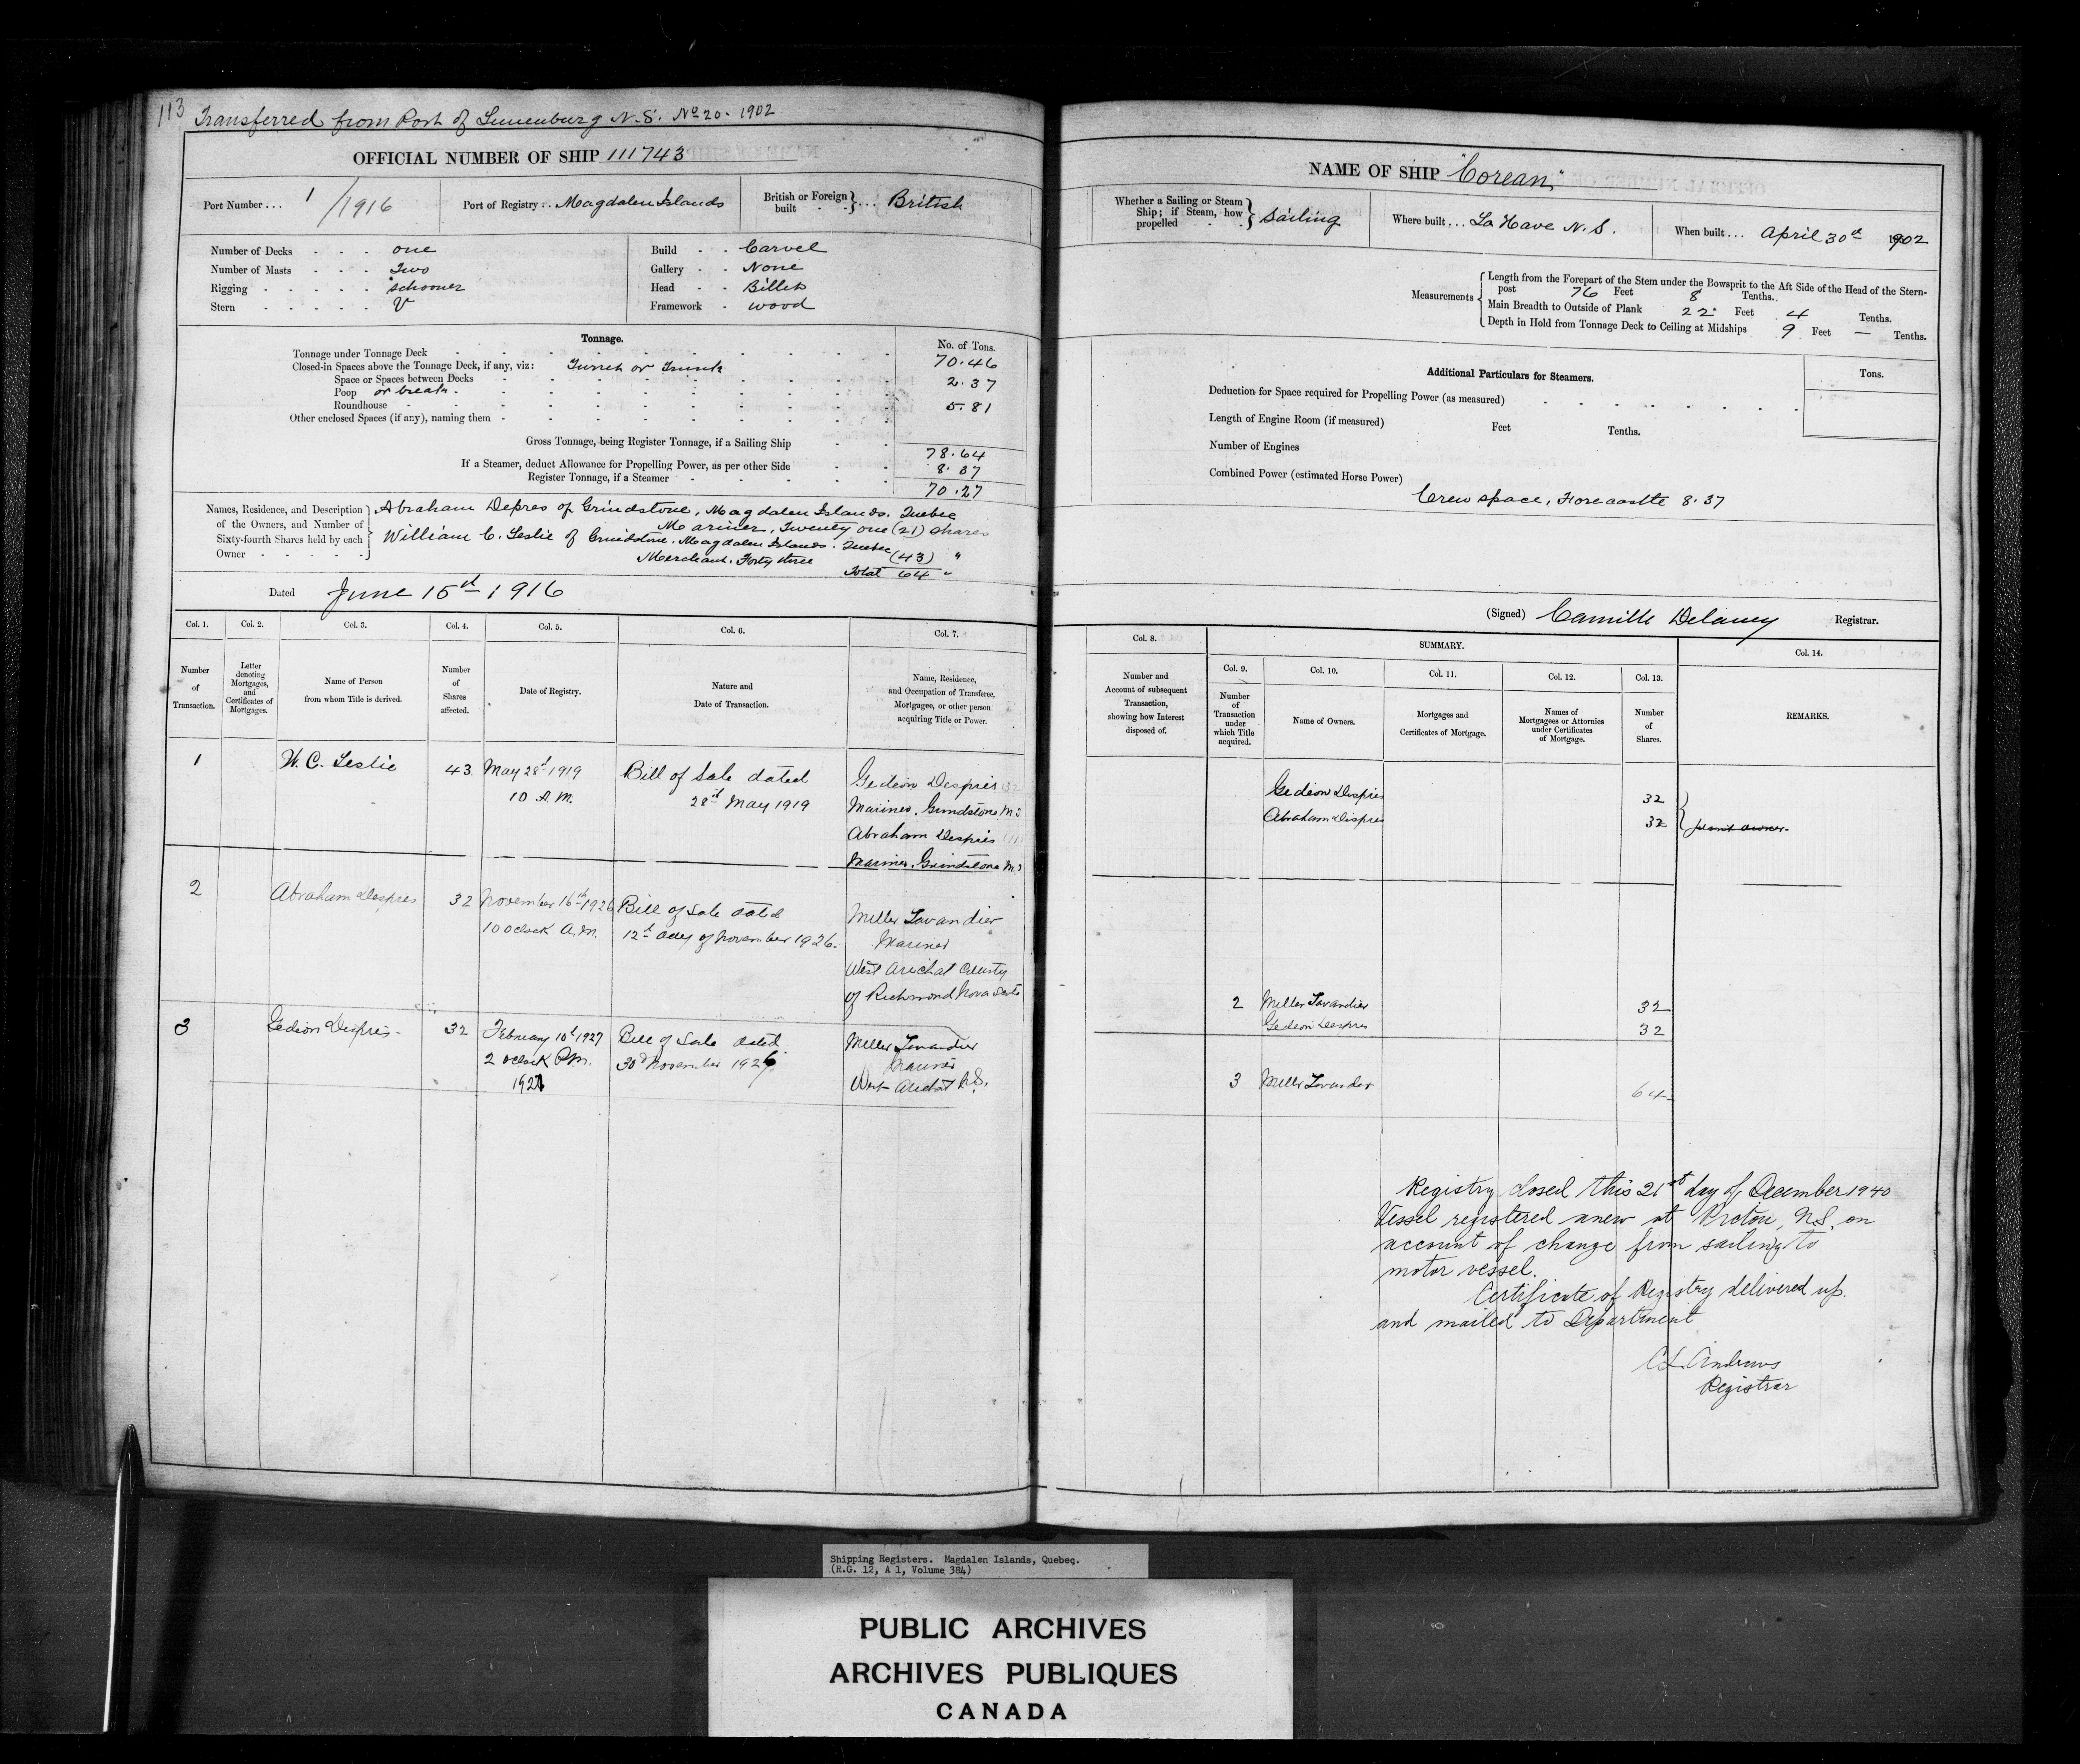 113 Transferred from Port of Lunenburg N.S. No 20. 1902
OFFICIAL NUMBER OF SHIP 111743
Port Number... 1/1916
Port of Registry.. Magdalen Islands
British or Foreign built } ... British
Number of Decks . . . one
Number of Masts . . . Two
Rigging . . . . . schooner
Stern . . . . . V
Build . . Carvel
Gallery . . None
Head . . Billet
Framework . wood
Tonnage.
No. of Tons.
Tonnage under Tonnage Deck 70.46
Closed-in Spaces above the Tonnage Deck, if any, viz: Turret or Trunk
Space or Spaces between Decks 2.37
Poop or break.
Roundhouse 5.81
Other enclosed Spaces (if any), naming them
Gross Tonnage, being Register Tonnage, if a Sailing Ship 78.64
If a Steamer, deduct Allowance for Propelling Power, as per other Side 8.37
Register Tonnage, if a Steamer 70.27
Names, Residence, and Description of the Owners, and Number of Sixty-fourth Shares held by each Owner . . . . .
Abraham Depres of Grindstone, Magdalen Islands. Quebec
Mariner, Twenty one (21) shares
William C. Leslie of Grindstone. Magdalen Islands. Quebec
Merchant. Forty three (43) "
Total 64 "
Dated June 15th 1916
Col. 1. Col. 2. Col. 3. Col. 4. Col. 5. Col. 6. Col. 7.
Number of Transaction.
Letter denoting Mortgages, and Certificates of Mortgages.
Name of Person from whom Title is derived.
Number of Shares affected.
Date of Registry.
Nature and Date of Transaction.
Name, Residence, and Occupation of Transferee, Mortgagee, or other person acquiring Title or Power.
1 W. C. Leslie 43 May 28th 1919 Bill of Sale dated Gedeon Despres 32
10 A.M. 28th May 1919 Mariner, Grindstone M.I
Abraham Despres 11
Mariner. Grindstone M.I
2 Abraham Despres 32 November 16th 1926 Bill of Sale dated Miller Lavandier
10 oclock A.M. 12th day of November 1926. Mariner
West Arichat County
of Richmond Nova Scotia
3 Gedion Despres 32 February 10th 1927 Bill of Sale dated Miller Lavandier
2 oclock P.M. 30th November 1926 Mariner
1927 West Arichat N.S.
NAME OF SHIP "Corean"
Whether a Sailing or Steam Ship; if Steam, how propelled } Sailing
Where built... La Have N.S.
When built... April 30th 1902
Measurements
Length from the Forepart of the Stem under the Bowsprit to the Aft Side of the Head of the Stern-
post 76 Feet 8 Tenths.
Main Breadth to Outside of Plank 22 Feet 4 Tenths.
Depth in Hold from Tonnage Deck to Ceiling at Midships 9 Feet — Tenths.
Additional Particulars for Steamers.
Tons.
Deduction for Space required for Propelling Power (as measured)
Length of Engine Room (if measured) Feet Tenths.
Number of Engines
Combined Power (estimated Horse Power)
Crew space, Forecastle 8.37
(Signed) Camille Delaney Registrar.
Col. 8. SUMMARY. Col. 14.
Col. 9. Col. 10. Col. 11. Col. 12. Col. 13.
Number and Account of subsequent Transaction, showing how Interest disposed of.
Number of Transaction under which Title acquired.
Name of Owners.
Mortgages and Certificates of Mortgage.
Names of Mortgagees or Attornies under Certificates of Mortgage.
Number of Shares.
REMARKS.
Gedeon Despres 32
Abraham Despres 32
2 Miller Lavandier 32
Gedeon Despres 32
3 Miller Lavandier 64
Registry closed this 21st day of December 1940
Vessel registered anew at Pictou, N.S. on
account of change from sailing to
motor vessel.
Certificate of Registry delivered up.
and mailed to Department
C.L. Andrews
Registrar
Shipping Registers. Magdalen Islands, Quebec.
(R.G. 12, A 1, Volume 384)
PUBLIC ARCHIVES
ARCHIVES PUBLIQUES
CANADA